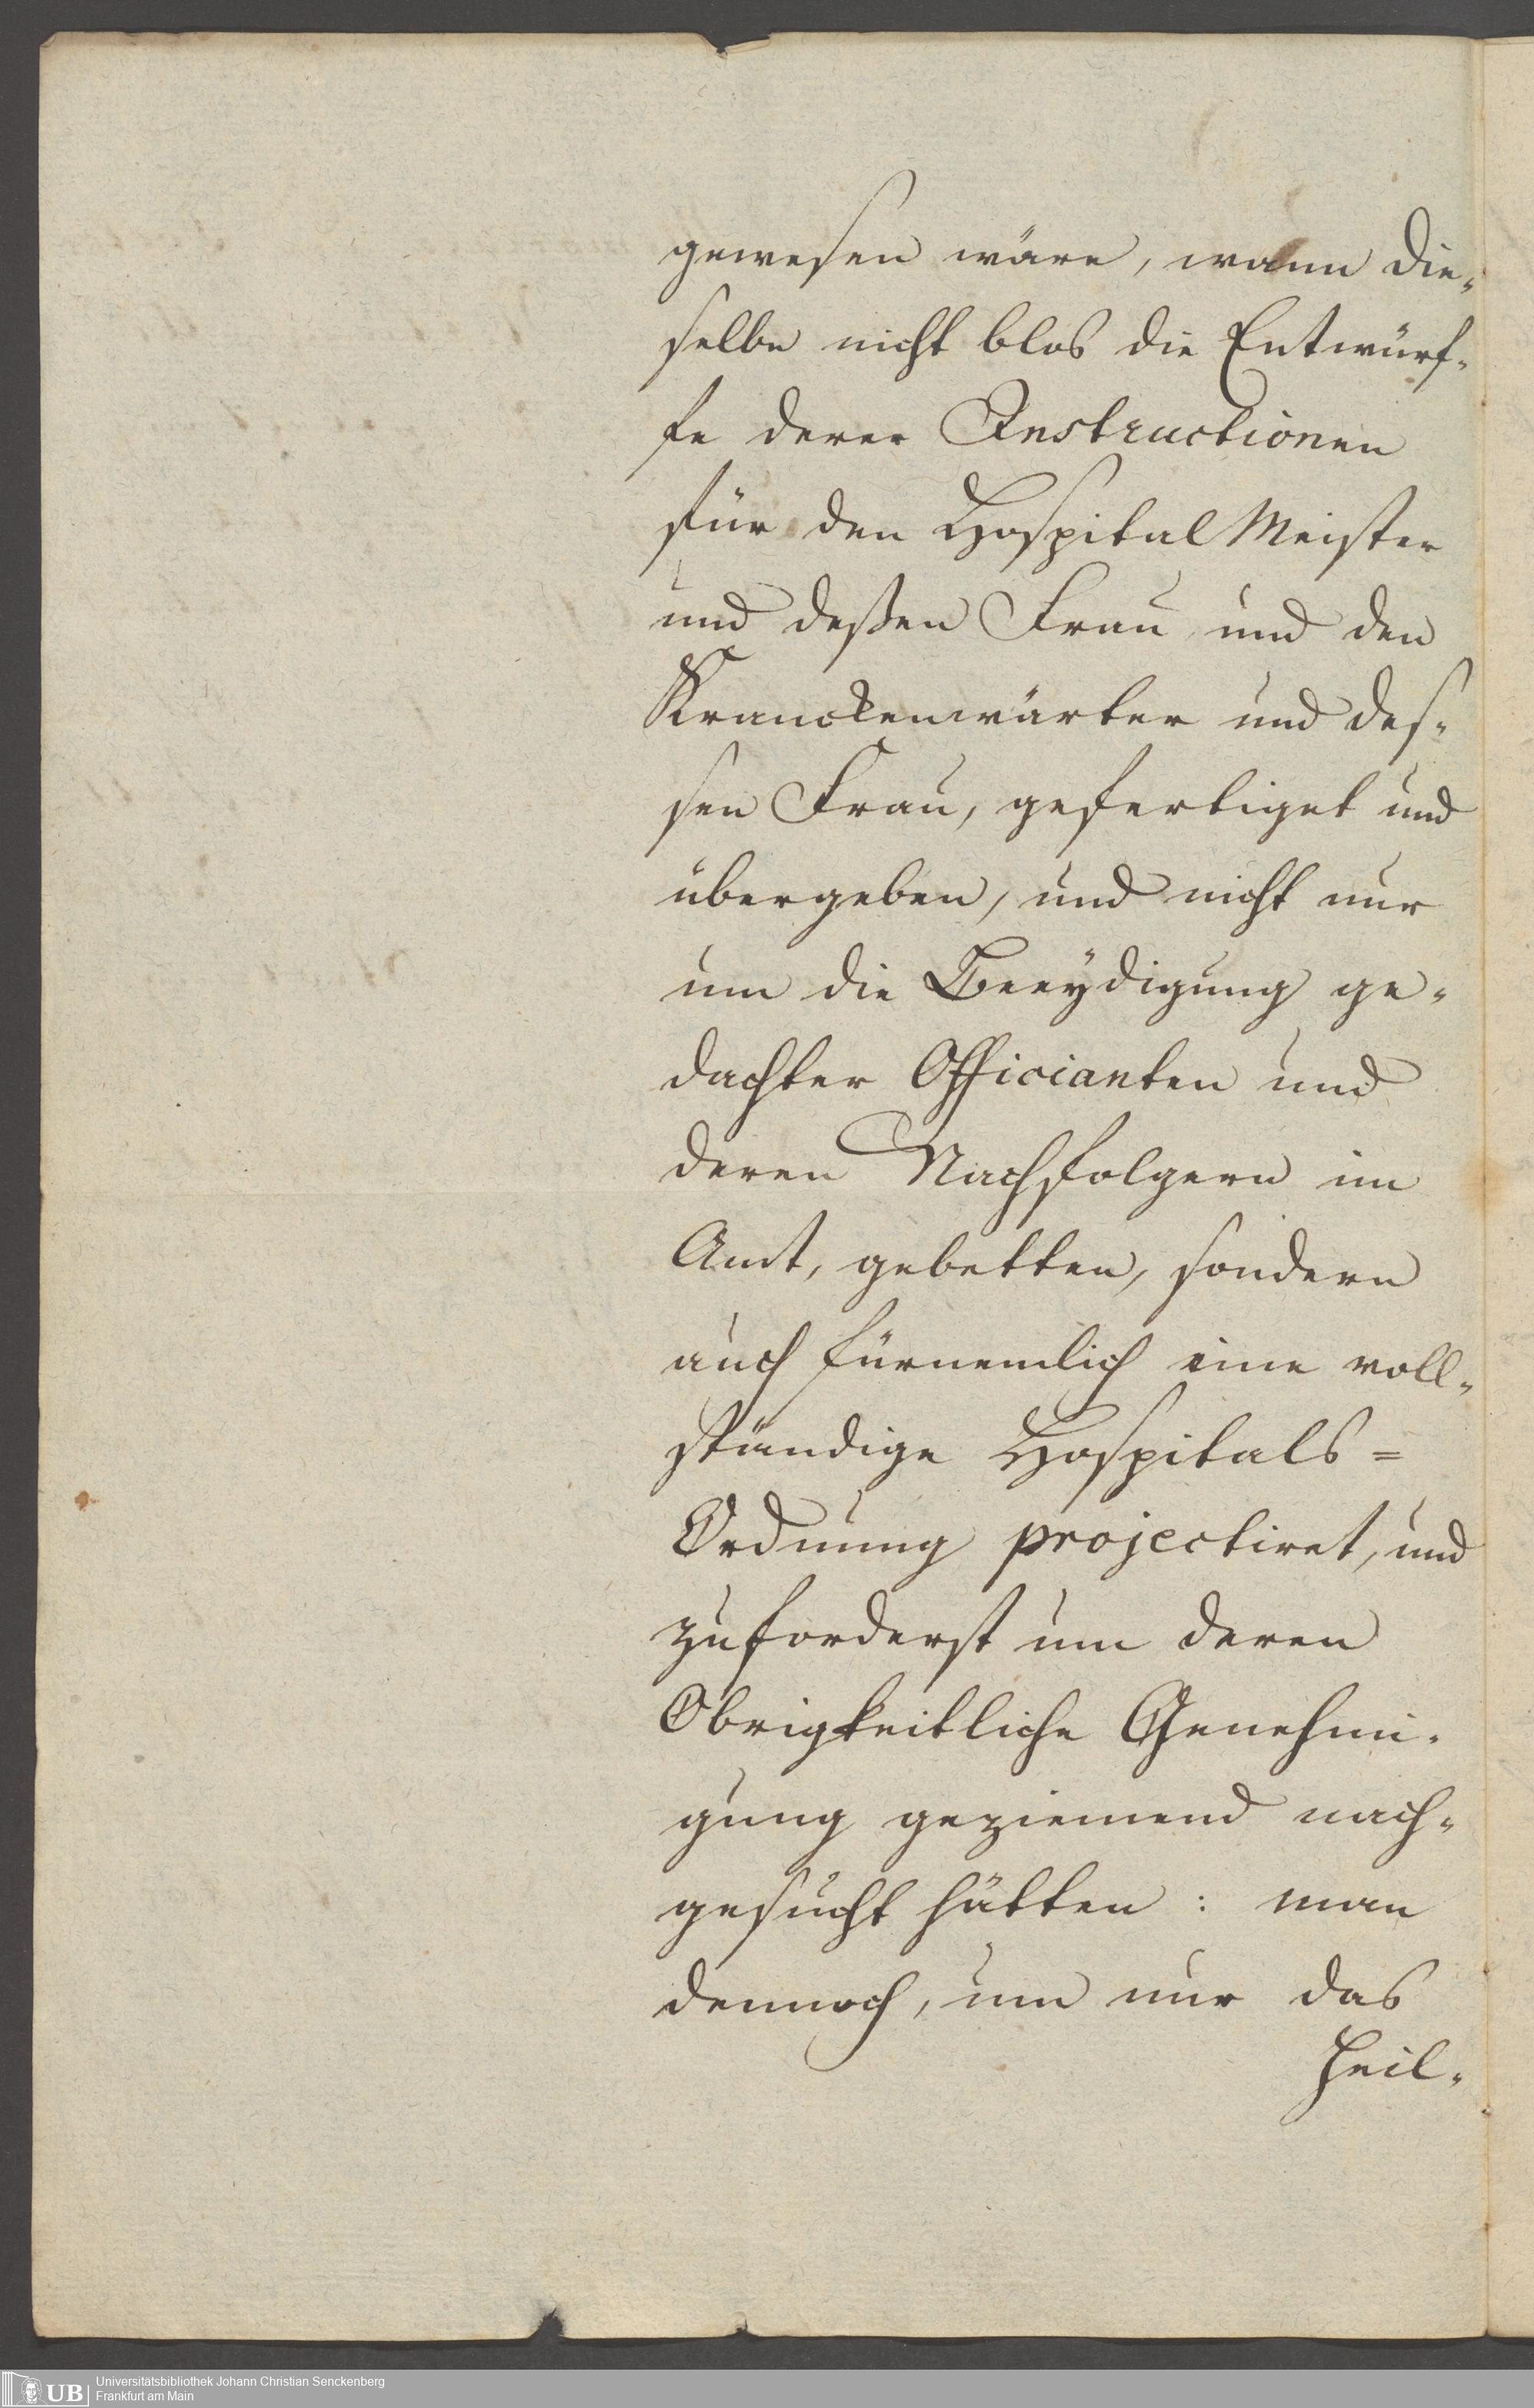 gewesen wäre, wann die-
selbe nicht blos die Entwürf-
fe derer Instructionen
für den Hospital Meister
und deßen Frau und den
Kranckenwärter und des-
sen Frau, gefertiget und
übergeben, und nicht nur
um die Beeÿdigung ge-
dachter Officianten und
deren Nachfolgern im
Amt, gebetten, sondern
auch fürnemlich eine voll-
ständige Hospitals=
Ordnung projectiret, und
zuforderst um deren
Obrigkeitliche Genehmi-
gung geziemend nach-
gesucht hätten: man
dennoch, um nur das
Heil-
Universitätsbibliothek Johann Christian Senckenberg
UB Frankfurt am Main